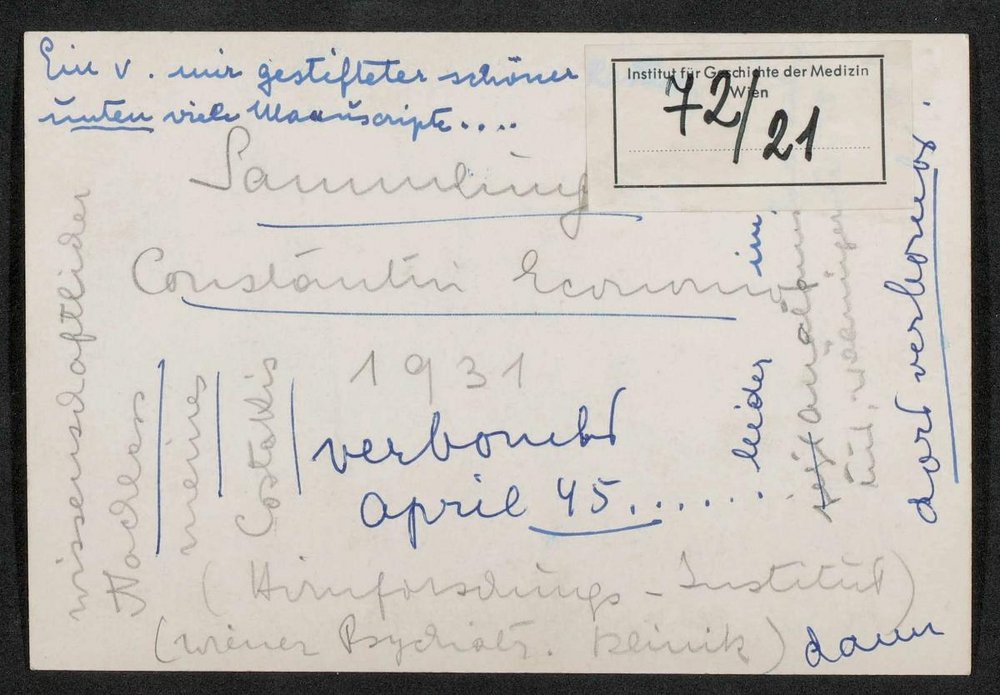 Ein v. mir gestifteter schöner
unten viele Manuscripte....
Institut für Geschichte der Medizin
Wien
72/21
Sammlung
Constantin Economo
1931
verbombt
April 45.......
leider
im
dort verbombt.
wissenschaftlicher
Nachlass
meines
Costakis
(Hirnforschungs-Institut)
(Wiener Psychiatr. Klinik)
dann